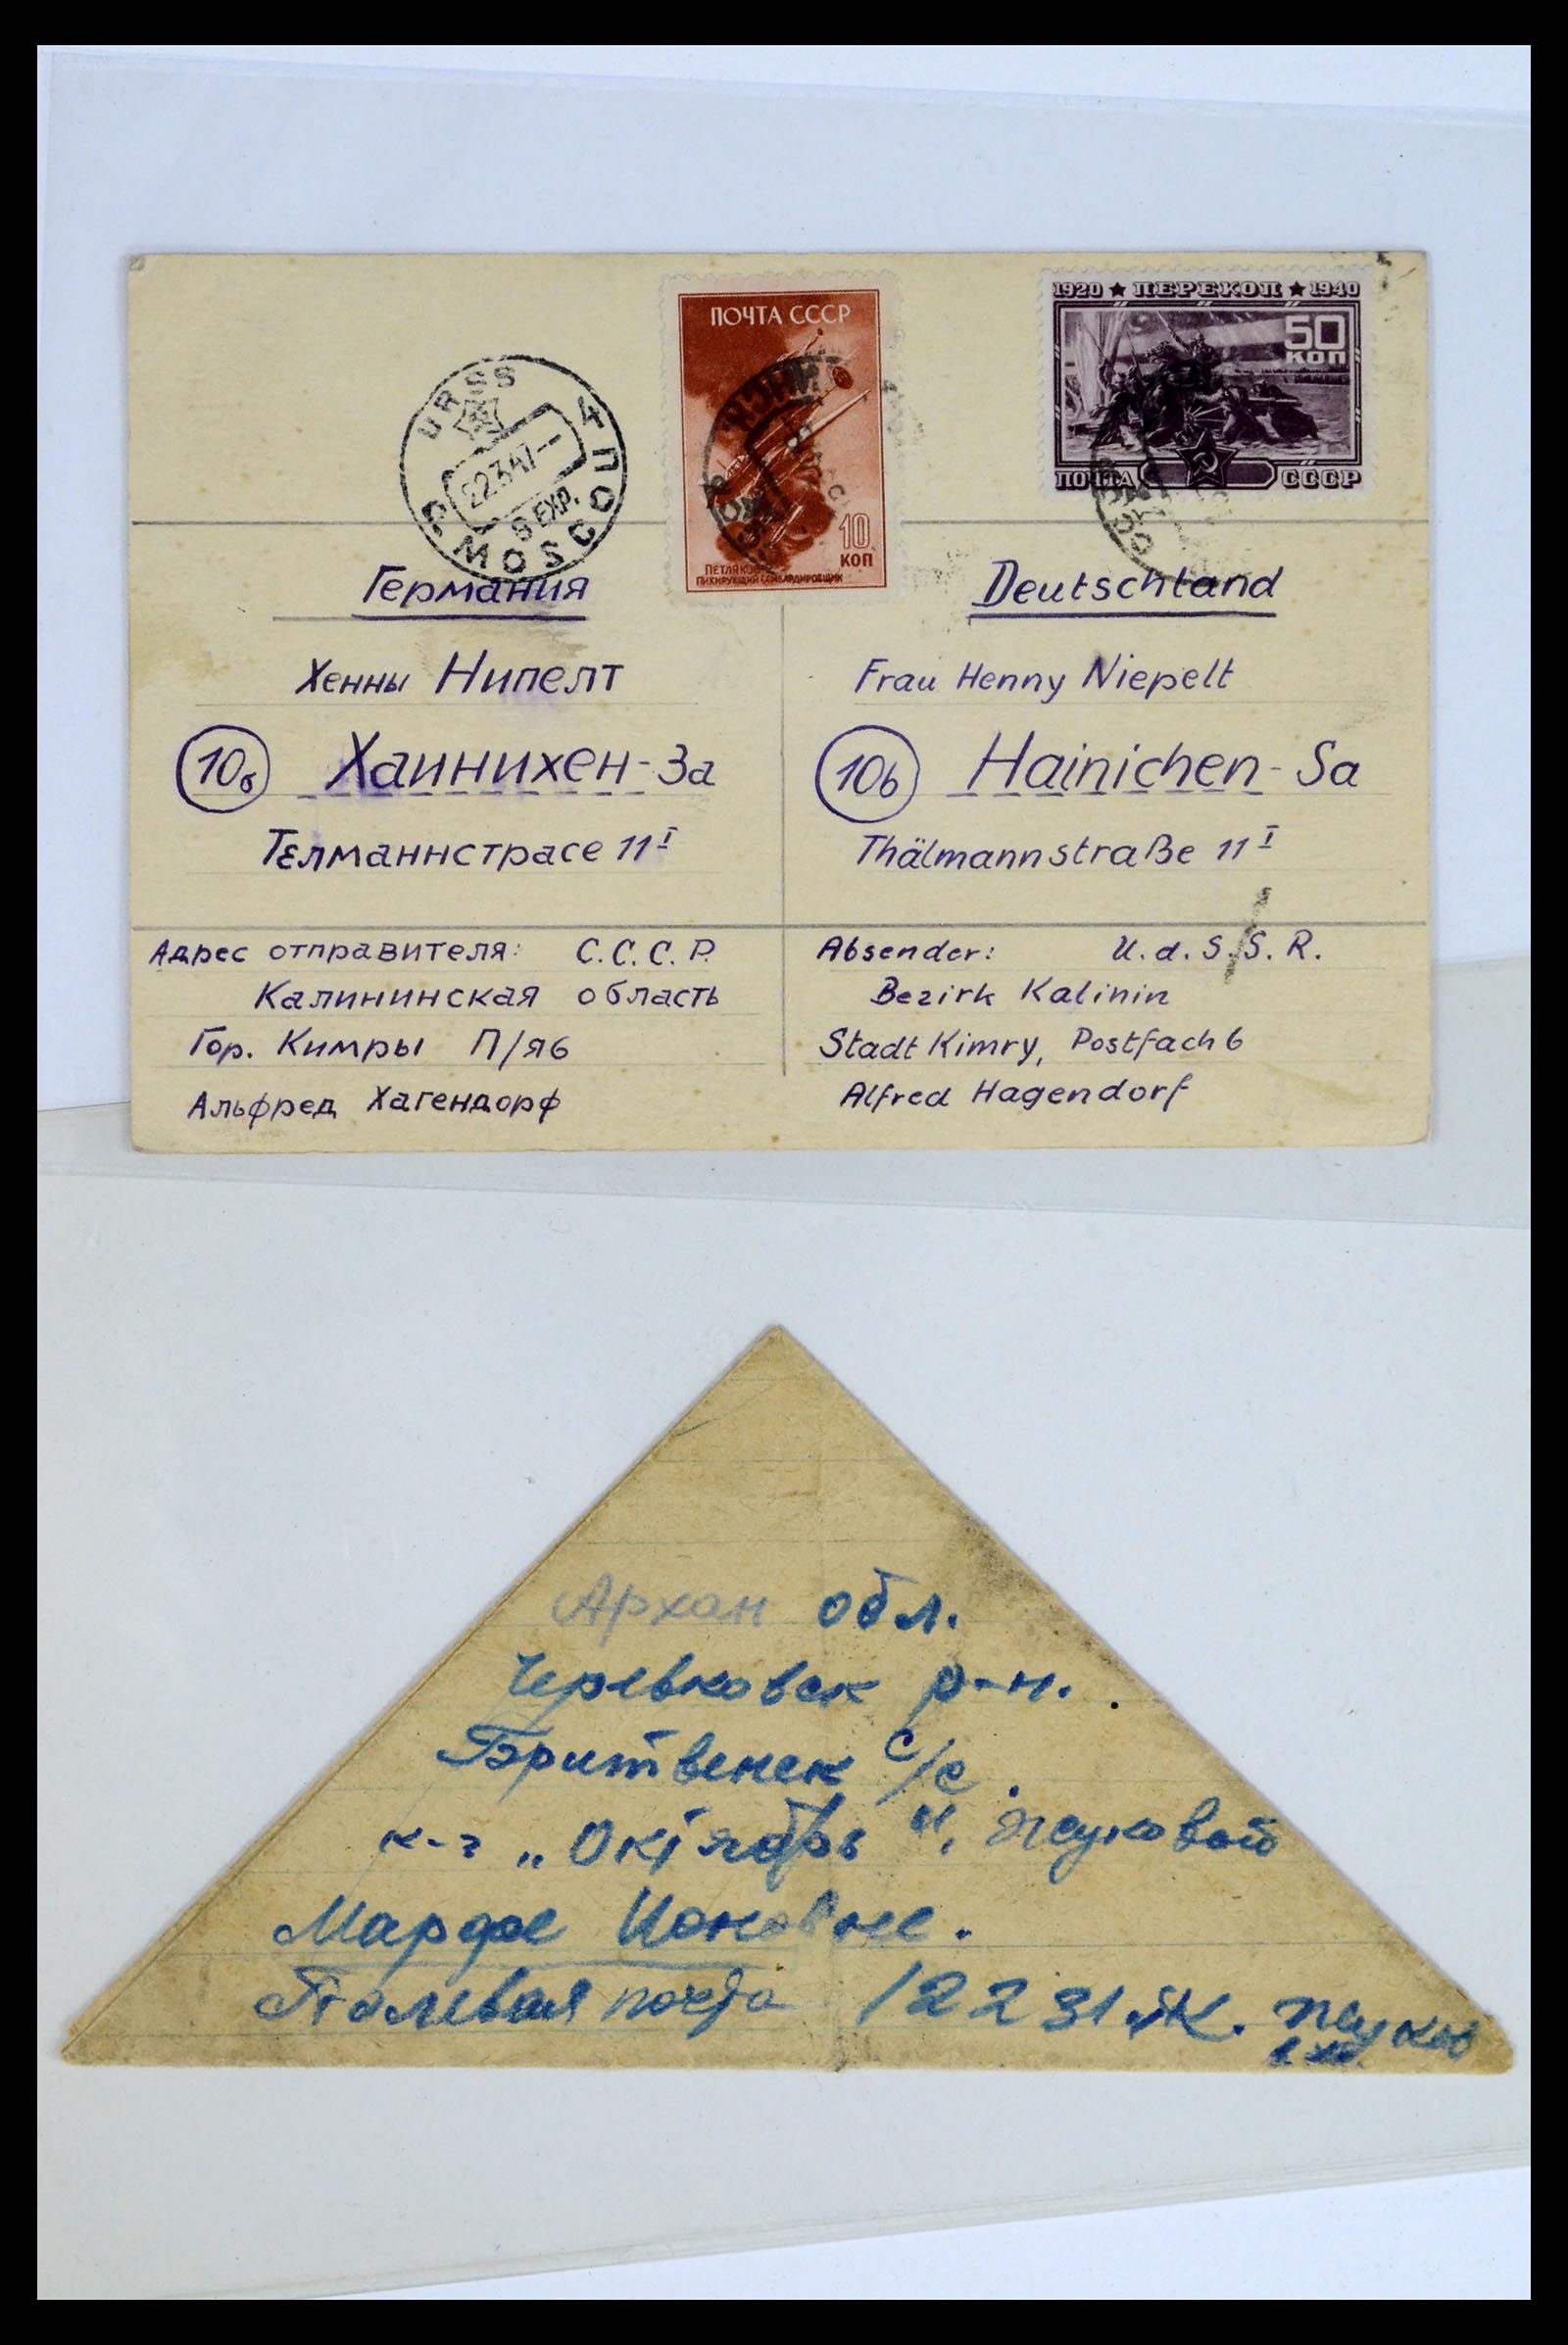 1920 ★ ПЕРЕКОП ★ 1940
50
КОП
ПОЧТА СССР
ПОЧТА СССР
10
КОП
ПЕТЛЯКОВ-2
ПИКИРУЮЩИЙ БОМБАРДИРОВЩИК
URSS
22347
6 EXP.
MOSCOU 4
Германия
Хенны Нипелт
10б Хаинихен-За
Телманнстрасе 11 I
Deutschland
Frau Henny Niepelt
10b Hainichen-Sa
Thälmannstraße 11 I
Адрес отправителя: С.С.С.Р.
Калининская область
Гор. Кимры П/я6
Альфред Хагендорф
Absender: U.d.S.S.R.
Bezirk Kalinin
Stadt Kimry, Postfach 6
Alfred Hagendorf
Архан обл.
Черевковск р-н.
с/с.
к-з „Октябрь", Жуковой
Марфе Ионовне.
Полевая почта 12231 Жуков